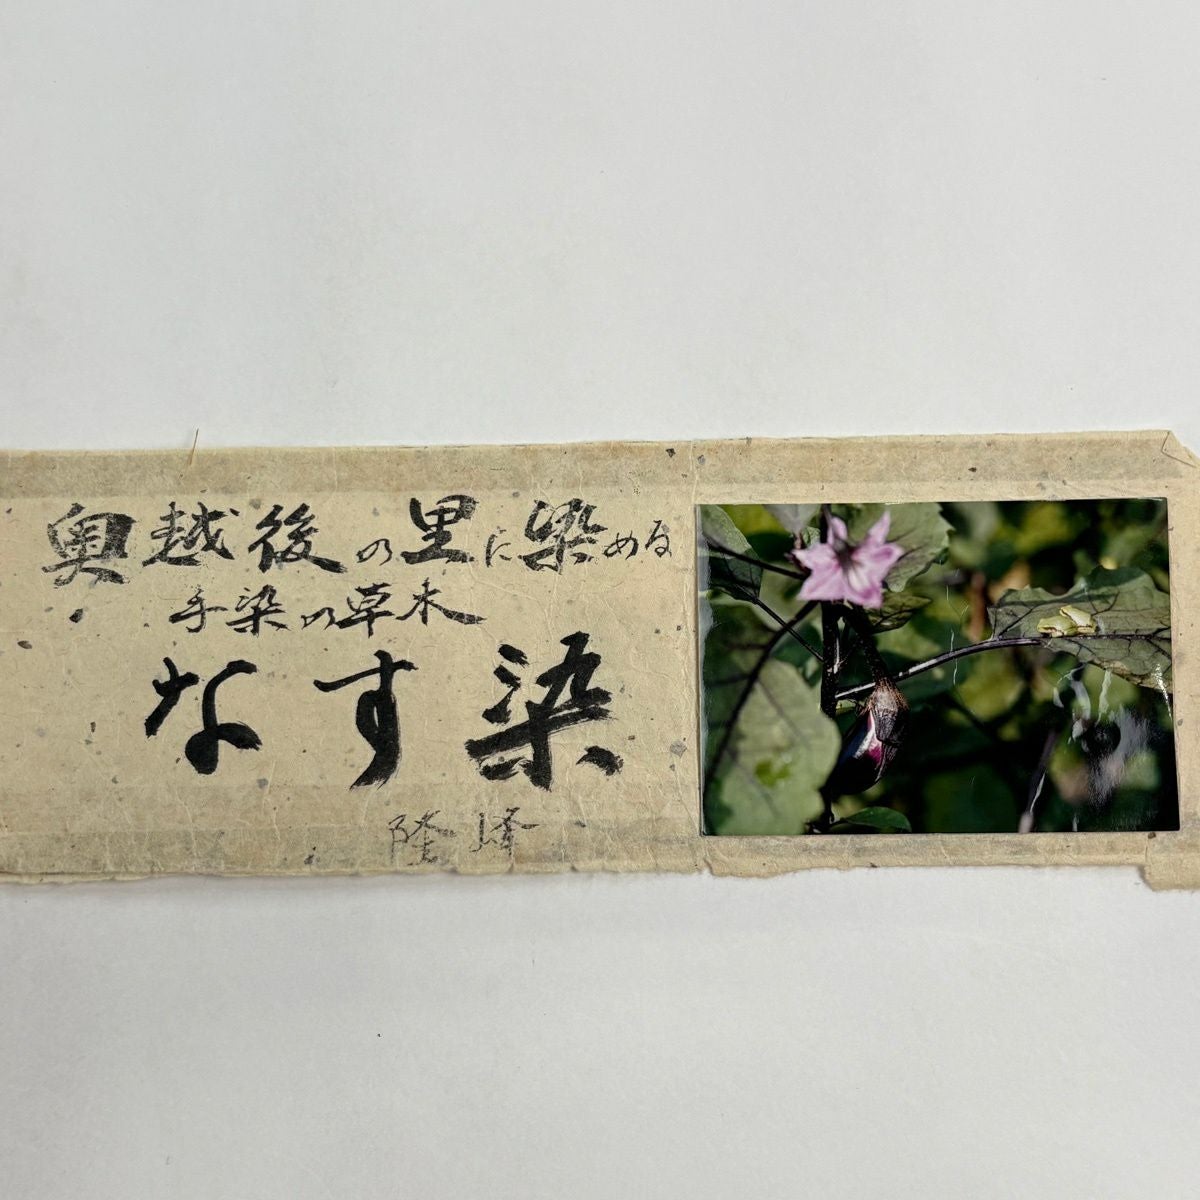 奥越後の里に染める
手染の草木
なす染
隆峰